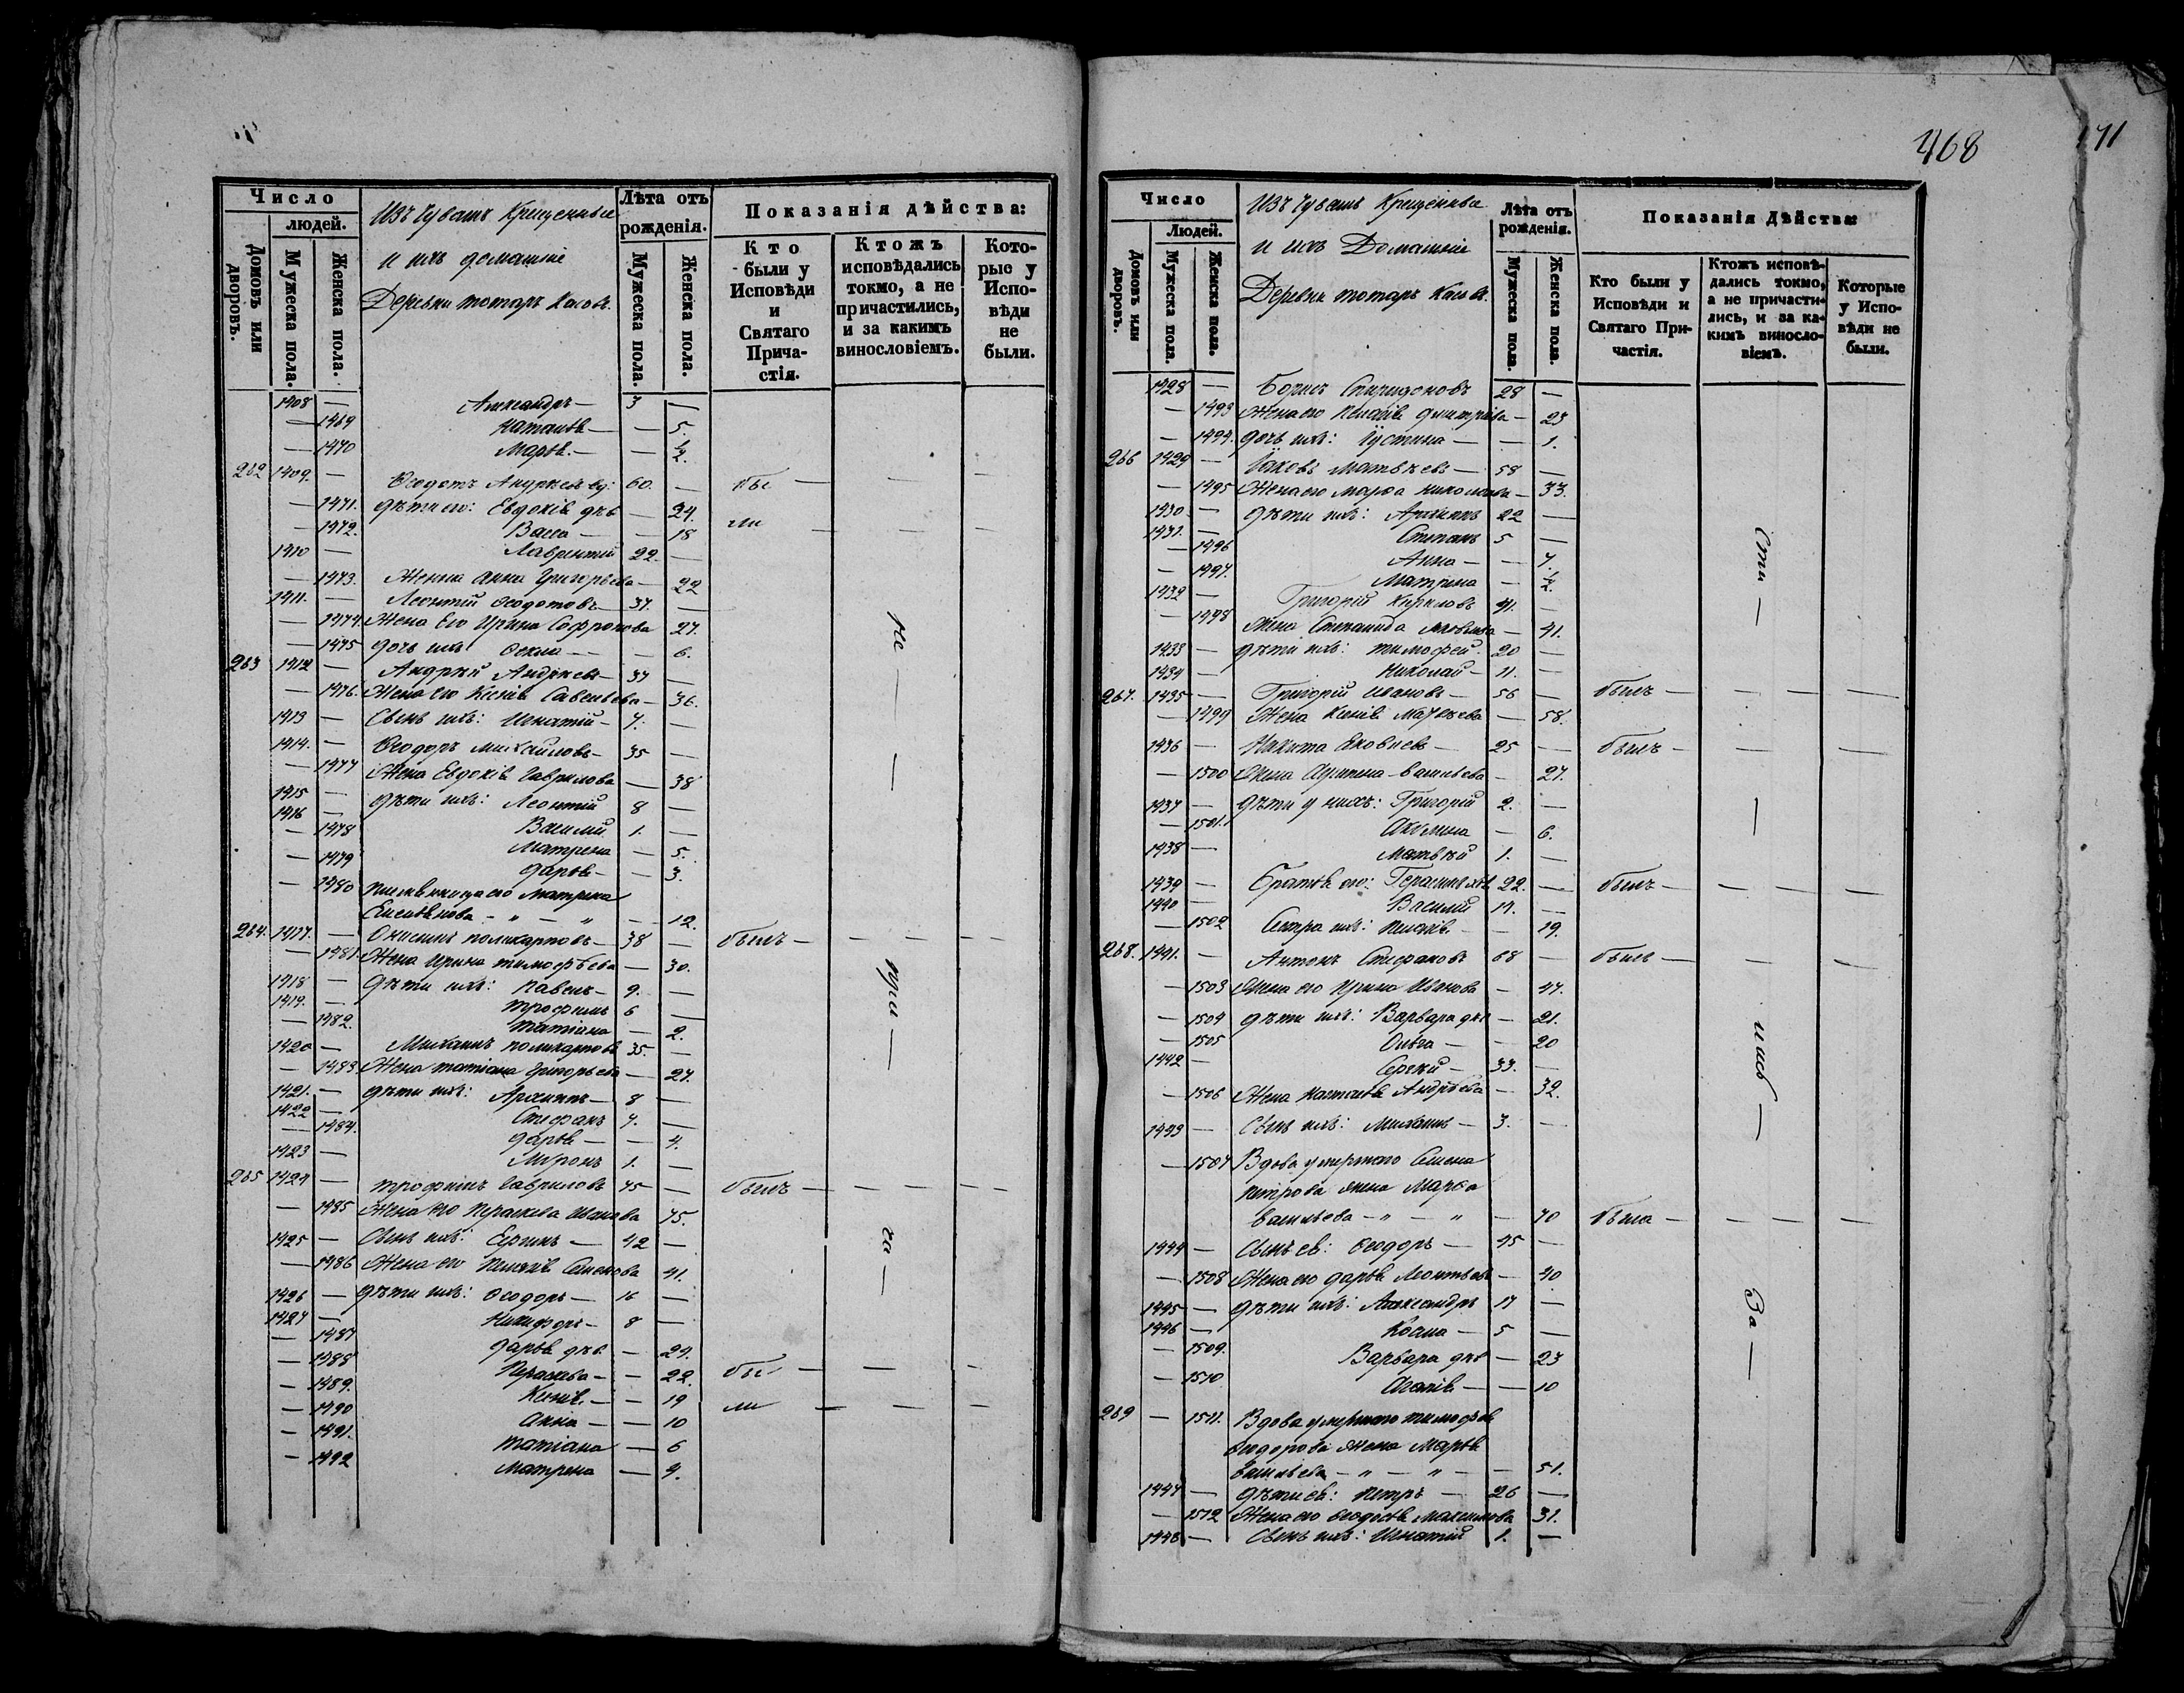 Число
людей.
Домовъ или дворовъ.
Мужеска пола.
Женска пола.
Изъ Чувашъ Крещенные
и ихъ домашніе
Деревни татаръ Касовъ.
Лѣта отъ рожденія.
Мужеска пола.
Женска пола.
Показанія дѣйства:
Кто были у Исповѣди и Святаго Прича-стія.
Ктожъ исповѣдались токмо, а не причастились, и за какимъ винословіемъ.
Кото-рые у Испо-вѣди не были.
1408 — Александръ — 3 —
— 1469 Наталья — — 5.
— 1470 Марья. — — ½.
262 1409. — Ѳеодотъ Андреевъ вд: 60. — бы — — —
— 1471. дѣти его: Евдокія дѣв — 24.
— 1472. Васса — — 18 ли — — —
1410 — Лаврентій 22. —
— 1473. Жена Анна Григорьева — 22
1411. — Леонтій Ѳеодотовъ — 37. —
— 1474. Жена Его Ирина Софронова 27.
— 1475 дочь ихъ Ѳекла — — 6.
263 1412 — Андрей Андреевъ — 37 —
— 1476. Жена его Ксенія Савельева — 36.
1413 — Сынъ ихъ: Игнатій — 7. —
1414. — Ѳеодоръ Михайловъ — 35 —
— 1477 Жена Евдокія Гаврилова — 38
1415 — дѣти ихъ: Леонтій 8 —
1416 — Василій 1. —
— 1478 Матрена — 5.
— 1479 Дарья — — 3.
— 1480 племянница его Матрена
Емельянова — " — " — 12.
264. 1417. — Онисимъ поликарповъ — 38 — былъ — — — —
— 1481. Жена Ирина тимофѣева — 30.
1418 — Дѣти ихъ: Павелъ — 9. —
1419. — трофимъ 6 —
— 1482. татіана — 2.
1420 — Михаилъ поликарповъ 35. —
— 1483. Жена татіана Григорьева — 27.
1421. — дѣти ихъ: Архипъ — 8 —
1422 — Стефанъ 7. —
— 1484. Дарья — — 4.
1423 — Миронъ 1. —
265 1424 — трофимъ Гавриловъ 75 — былъ — — — —
— 1485 Жена его Пераскева Иванова 75.
1425 — Сынъ ихъ: Сергій — 42 —
— 1486 Жена его Пелагія Семенова 41.
1426 — дѣти ихъ: Ѳеодоръ — 16 —
1427 — Никифоръ — 8 —
— 1487 Дарья дѣв. — 24.
— 1488 Пераскева — — 22. бы — — —
— 1489. Ксенія — — 19
— 1490 Анна — — 10 ли — — —
— 1491. татіана — 6
— 1492 Матрена — 4.
не — — при — ча —
468
171
Число
Людей.
Домовъ или дворовъ.
Мужеска пола.
Женска пола.
Изъ Чувашъ Крещенные
и ихъ Домашніе
Деревни татаръ Касовъ.
Лѣта отъ рожденія.
Мужеска пола.
Женска пола.
Показанія Дѣйства:
Кто были у Исповѣди и Святаго При-частія.
Ктожъ исповѣ-дались токмо, а не причасти-лись, и за ка-кимъ винословіемъ.
Которые у Испо-вѣди не были.
1428 — Борисъ Спиридоновъ 28 —
— 1493 Жена его Пелагія Димитріева — 23
— 1494. дочь ихъ: Іустина — — 1.
266 1429 — Іаковъ Матвѣевъ — 58 —
— 1495 Жена его Марѳа Николаева — 33.
1430 — дѣти ихъ: Архипъ 22 —
1431. — Степанъ 5 —
— 1496 Анна — — 7.
— 1497. Матрена — ½.
1432 — Григорій Кириловъ 41. —
— 1498 Жена Степанида Яковлева — 41.
1433 — дѣти ихъ: тимофей 20 —
1434 — Николай — 11. —
267. 1435 — Григорій Ивановъ — 56 — былъ — — — —
— 1499 Жена Ксенія Матвѣева — 58.
1436 — Никита Яковлевъ — 25 — былъ — — —
— 1500 Жена Агрипена Васильева — 27.
1437 — дѣти у нихъ: Григорій 2. —
— 1501. Акулина — 6.
1438 — Матвѣй 1. —
1439 — Братья его: Герасимъ 22. — былъ — — — —
1440 — Василій 17. —
— 1502 Сестра ихъ: Пелагія — — 19.
268. 1441. — Антонъ Стефановъ 68 — былъ — — —
— 1503 Жена его Ирина Иванова — 47.
— 1504 дѣти ихъ: Варвара дѣв — 21.
— 1505 Ольга — — 20
1442 — Сергѣй — 33. —
— 1506 Жена Наталья Андреева — 32.
1443 — Сынъ ихъ: Михаилъ — 3. —
— 1507 Вдова умершаго Семена
Петрова жена Марѳа
Васильева — " — " — 70 была — — — —
1444 — Сынъ ея: Ѳеодоръ — 45 —
— 1508 Жена его Дарья Леонтьева — 40
1445 — дѣти ихъ: Александръ 17 —
1446 — Косма — 5 —
— 1509. Варвара дѣв — 23
— 1510 Агапія — — 10
269 — 1511. Вдова умершаго тимофея
Ѳеодорова жена Марья
Васильева — " — " — — 51.
1447 — дѣти ея: Петръ — 26 —
— 1512 Жена его Ѳеодосія Максимова 31.
1448 — Сынъ ихъ: Игнатій 1. —
сти — — лись — За —